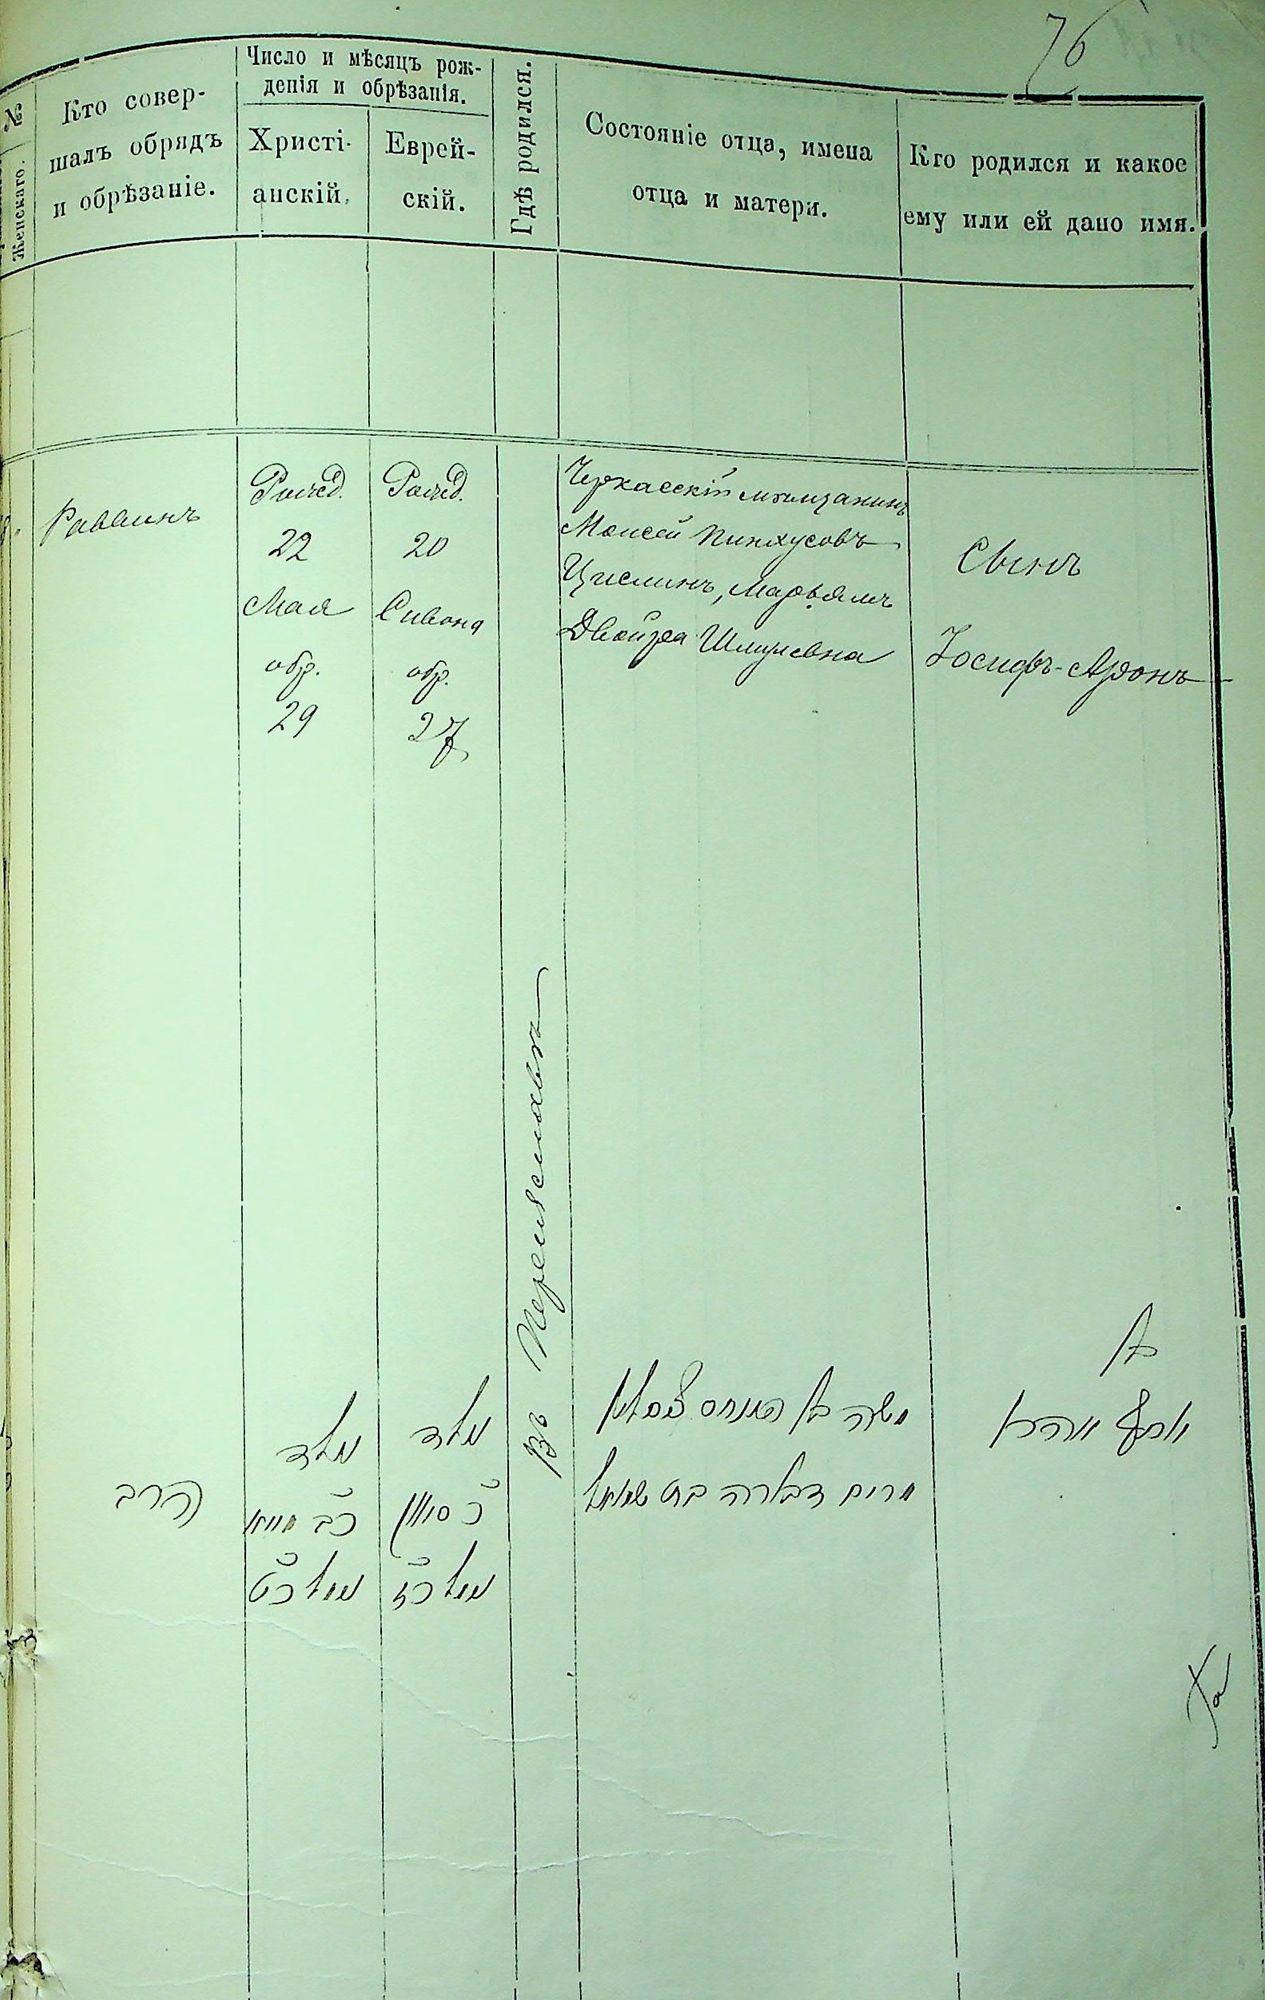 76
№
Женскаго.
Кто совер-
шалъ обрядъ
и обрѣзаніе.
Число и мѣсяцъ рож-
денія и обрѣзанія.
Христі-
анскій.
Еврей-
скій.
Гдѣ родился.
Состояніе отца, имена
отца и матери.
Кто родился и какое
ему или ей дано имя.
Раввинъ
Рожд.
22
Мая
обр.
29
Рожд.
20
Сивона
обр.
27
Въ Переяславѣ
Черкасскій мѣщанинъ
Моисей Пинхусовъ
Цислинъ, Марьямъ
Двойра Шмулевна
Сынъ
Іосифъ-Аронъ
הרב
נולד
כב מייא
נימול כט
נולד
כ סיון
נימול כז
משה בן פנחס
מרים דבורה בת שמואל
בן
יוסף אהרן